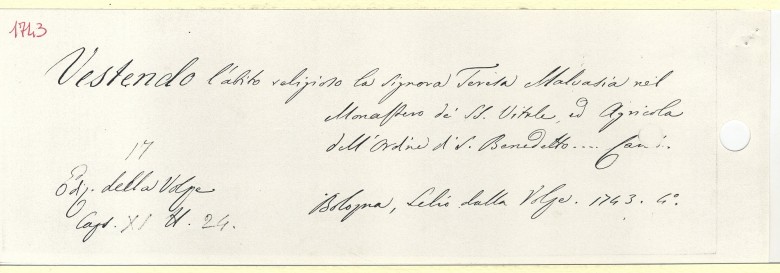 1743
Vestendo l'abito religioso la Signora Teresa Malvasia nel
Monastero de' SS. Vitale, ed Agricola
dell'Ordine di S. Benedetto.... Can i.
17
Ediz. della Volpe
Caps. XI N. 24.
Bologna, Lelio dalla Volpe. 1743. 4°.